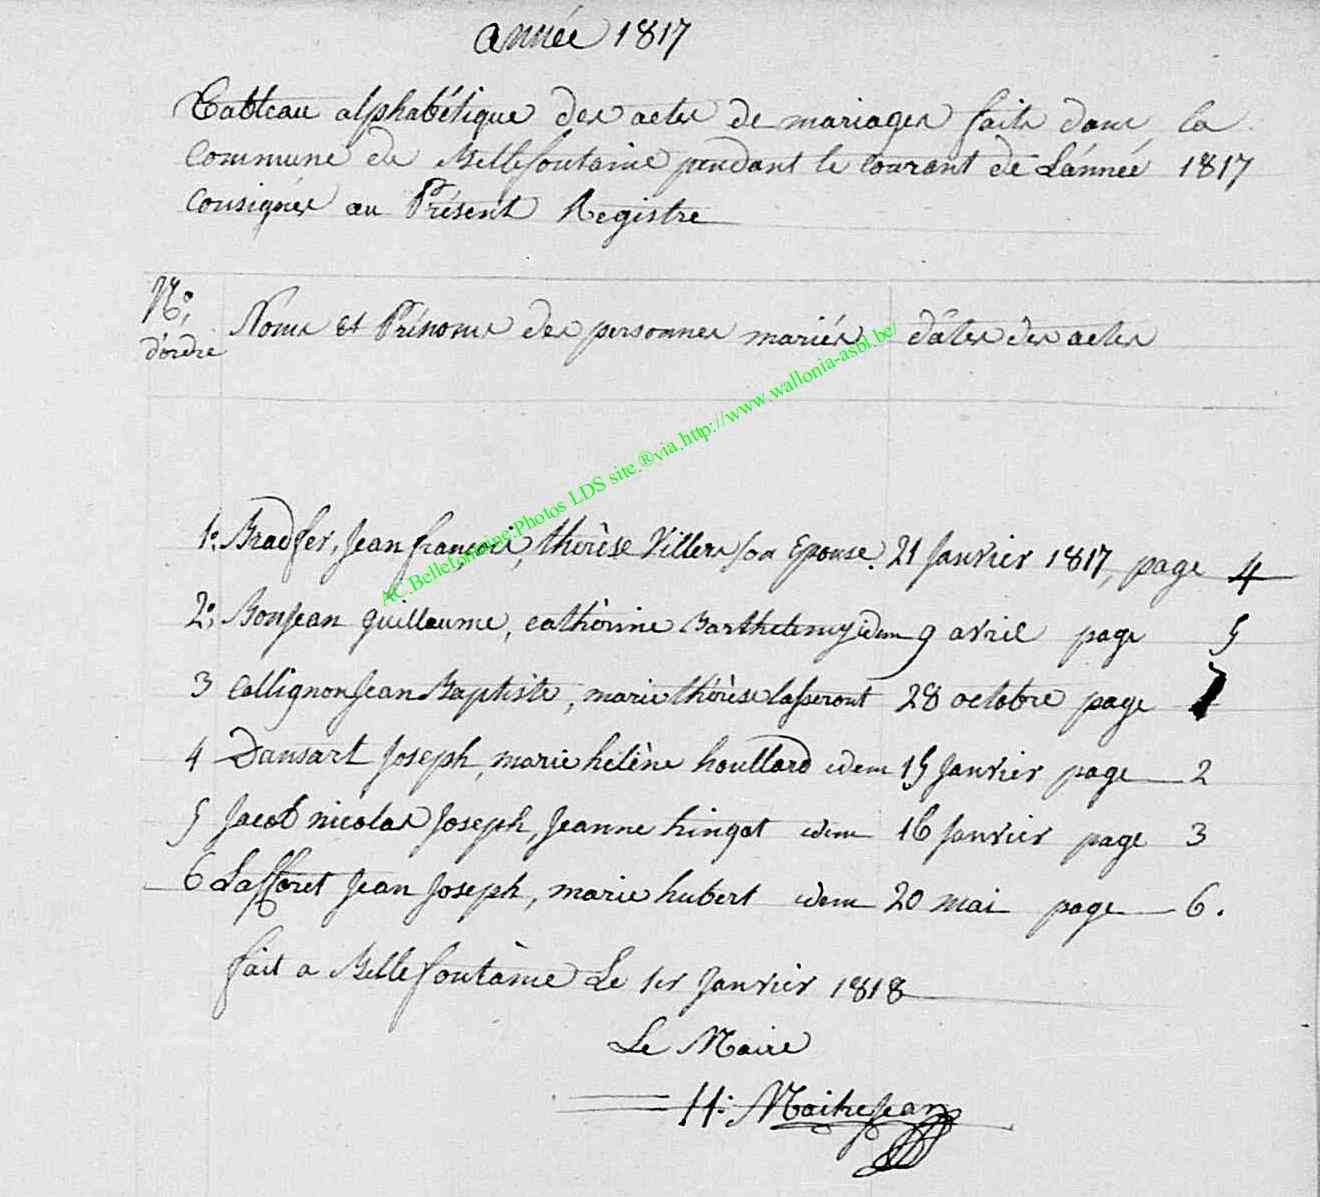 année 1817
Tableau alphabétique des actes de mariages faits dans la
commune de Bellefontaine pendant le courant de L'année 1817
consignés au Présent Registre
N°;
d'ordre
Noms et Prénoms des personnes mariés
dâtes des actes
1: Bradfer, Jean françois, thérèse Villers son Epouse. 21 Janvier 1817, page 4
2; Bonjean guillaume, cathérine Barthelemy idem 9 avril page 5
3 Collignon Jean Baptiste, marie thérèse 28 octobre page 7
4 Dansart Joseph, marie hélène houllard idem 15 Janvier page 2
5 Jacob nicolas Joseph, Jeanne hingot idem 16 Janvier page 3
6 Lafforet Jean Joseph, marie hubert idem 20 mai page 6.
fait a Bellefontaine Le 1er Janvier 1818
Le Maire
H: MaitreJean
AC.Bellefontaine.Photos LDS site.®via.http://www.wallonia-asbl.be/